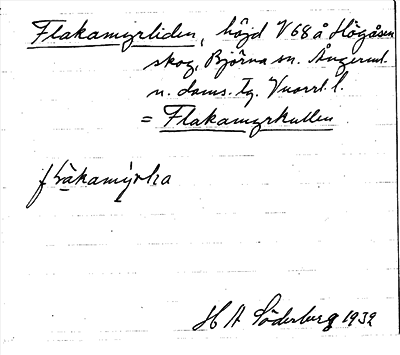 Flakamyrliden, höjd V 68 å Högåsen
skog, Björna sn. Ångerml.
n. doms. Tg. Vnorrl. l.
= Flakamyrkullen
fläkamýrka
H A Söderberg 1932